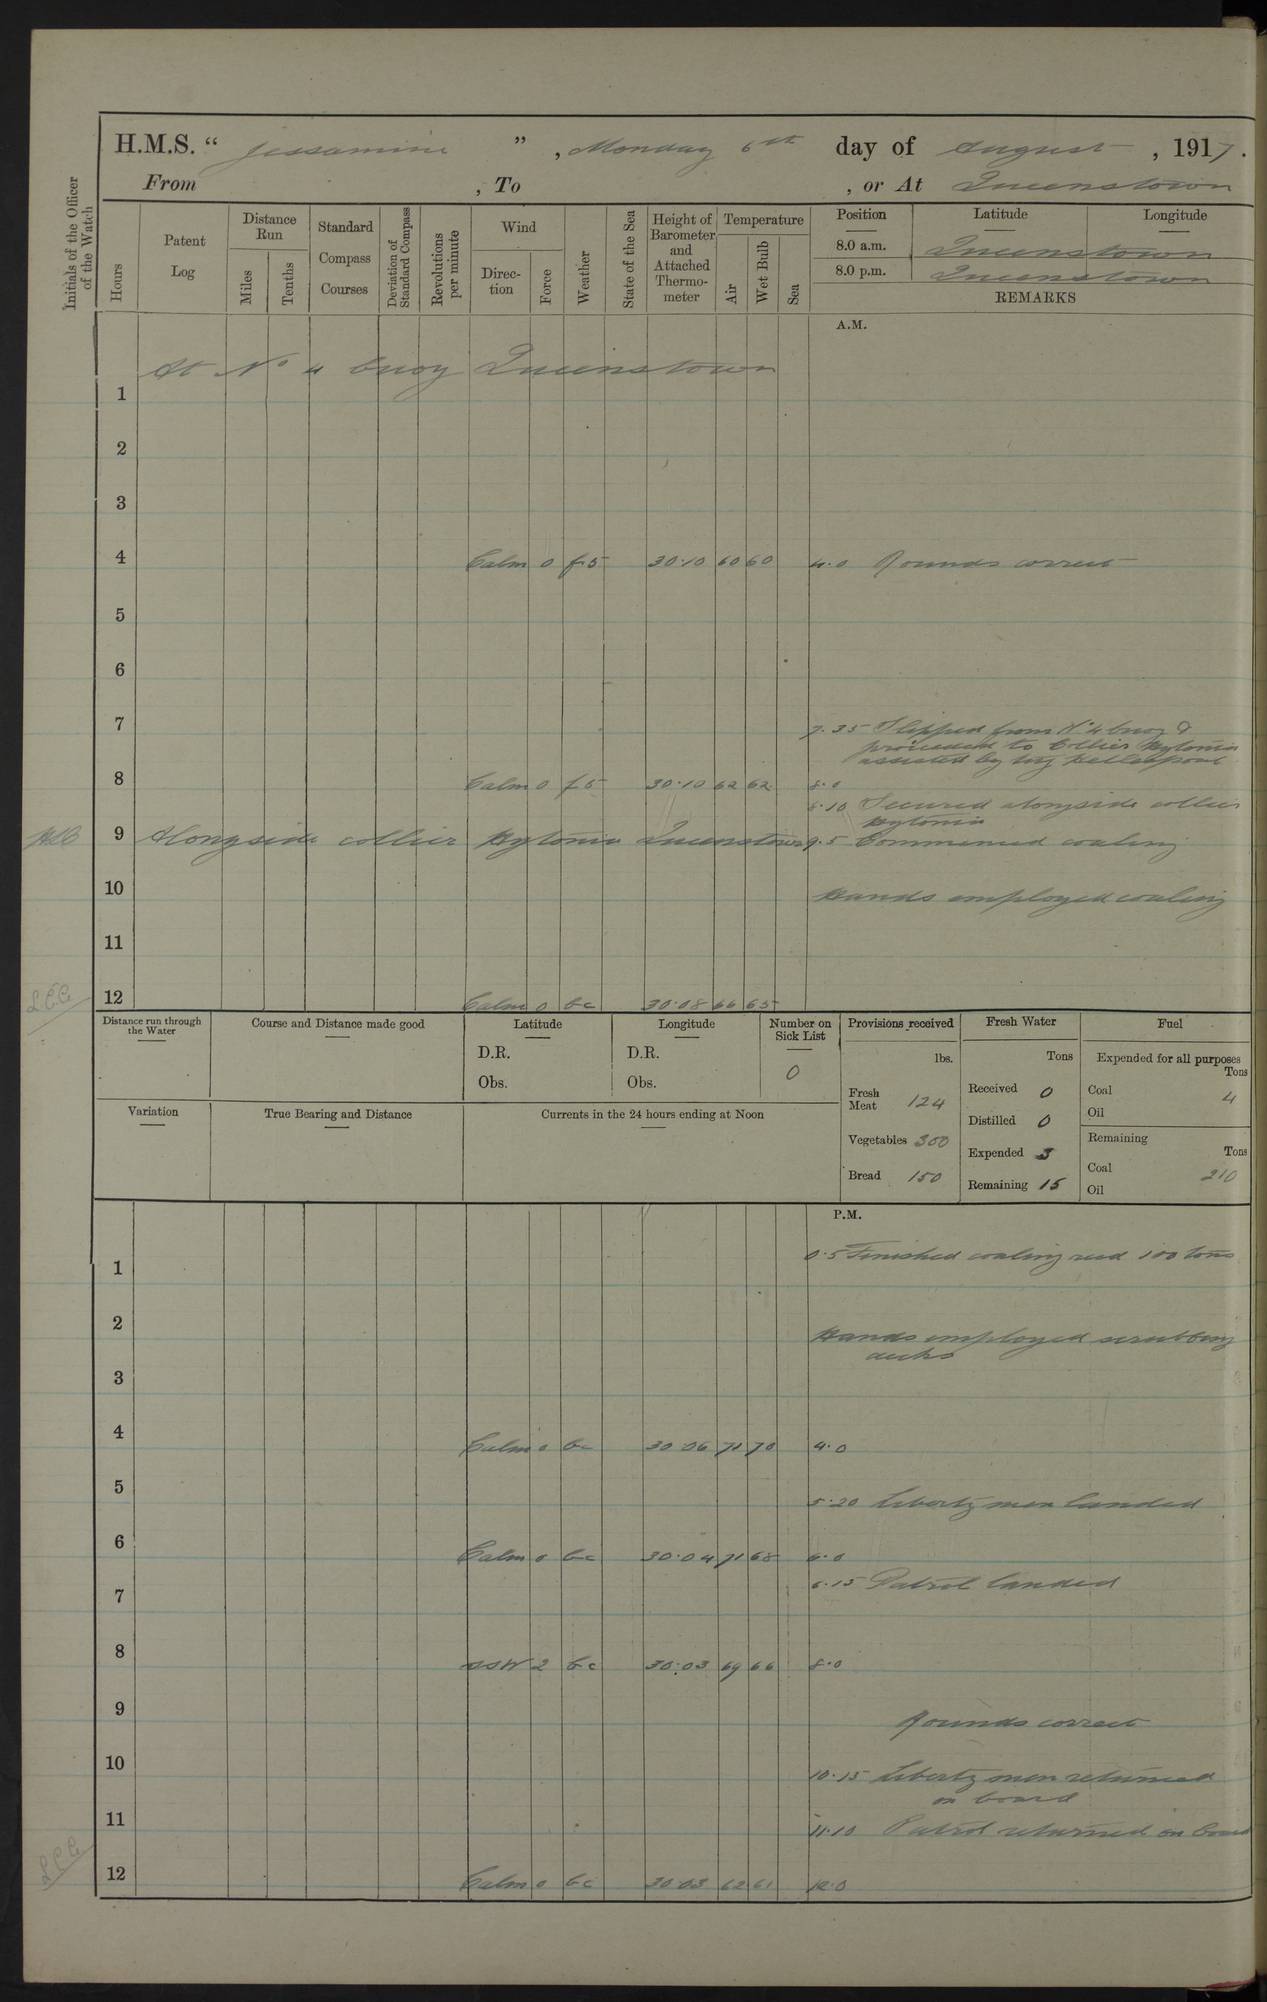 H.M.S. “ Jessamine ” , Monday 6th day of August , 1917.
From , To , or At Queenstown
Initials of the Officer of the Watch
Hours
Patent Log
Distance Run
Miles
Tenths
Standard Compass Courses
Deviation of Standard Compass
Revolutions per minute
Wind
Direction
Force
Weather
State of the Sea
Height of Barometer and Attached Thermometer
Temperature
Air
Wet Bulb
Sea
Position Latitude Longitude
8.0 a.m. Queenstown
8.0 p.m. Queenstown
REMARKS
A.M.
At No 4 buoy Queenstown
1
2
3
4 Calm 0 f5 30.10 60 60 4.0 Rounds correct
5
6
7
7.35 Slipped from No 4 buoy &
proceeded to Collier Hytonia
assisted by tug
8 Calm 0 f5 30.10 62 62 8.0
8.10 Secured alongside collier
Hytonia
9 Alongside collier Hytonia Queenstown 9.5 Commenced coaling
10 Hands employed coaling
11
12 Calm 0 bc 30.08 66 65
Distance run through the Water
Course and Distance made good
Latitude
D.R.
Obs.
Longitude
D.R.
Obs.
Number on Sick List
0
Variation
True Bearing and Distance
Currents in the 24 hours ending at Noon
Provisions received
lbs.
Fresh Meat 124
Vegetables 300
Bread 150
Fresh Water
Tons
Received 0
Distilled 0
Expended 3
Remaining 15
Fuel
Expended for all purposes
Tons
Coal 4
Oil
Remaining
Tons
Coal 210
Oil
P.M.
0.5 Finished coaling recd 100 tons
1
2 Hands employed scrubbing
decks
3
4 Calm 0 bc 30.06 71 70 4.0
5 5.20 Liberty men landed
6 Calm 0 bc 30.04 71 68 6.0
6.15 Patrol landed
7
8 SSW 2 bc 30.03 69 66 8.0
9 Rounds correct
10 10.15 Liberty men returned
on board
11 11.10 Patrol returned on board
12 Calm 0 bc 30.03 62 61 12.0